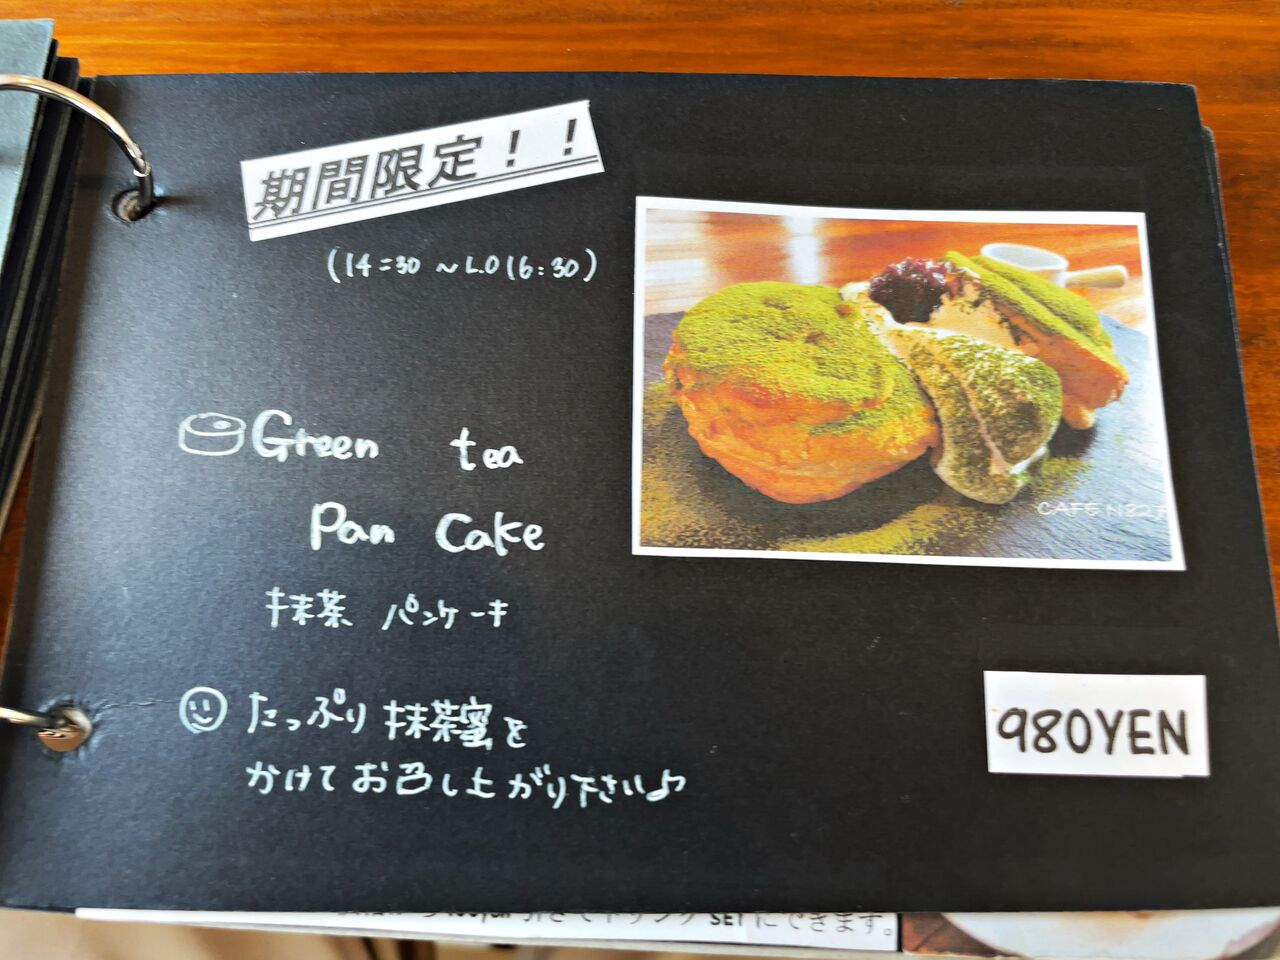 期間限定！！
(14:30 ~ L.O 16:30)
Green tea
Pan Cake
抹茶 パンケーキ
たっぷり抹茶蜜を
かけてお召し上がり下さい♪
CAFE N827
980YEN
SETにできます。